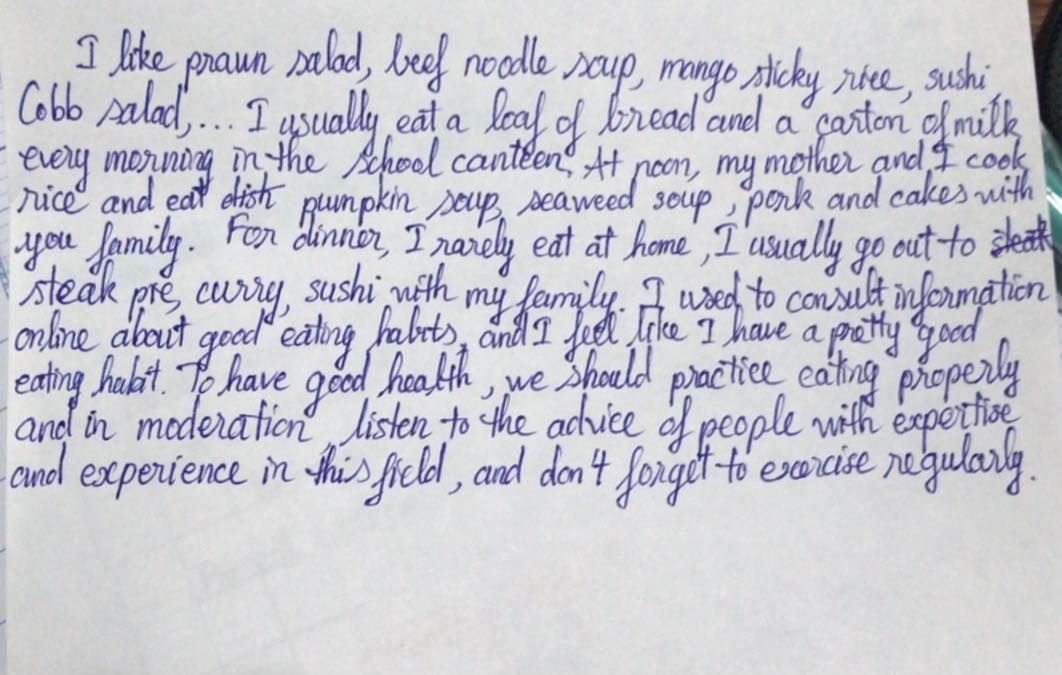 I like prawn salad, beef noodle soup, mango sticky rice, sushi,
Cobb salad,... I usually eat a loaf of bread and a carton of milk
every morning in the school canteen. At noon, my mother and I cook
rice and eat dish pumpkin soup, seaweed soup, pork and cakes with
you family. For dinner, I rarely eat at home, I usually go out to steak
steak pie, curry, sushi with my family. I used to consult information
online about good eating habits, and I feel like I have a pretty good
eating habit. To have good health, we should practice eating properly
and in moderation, listen to the advice of people with expertise
and experience in this field, and don't forget to exercise regularly.